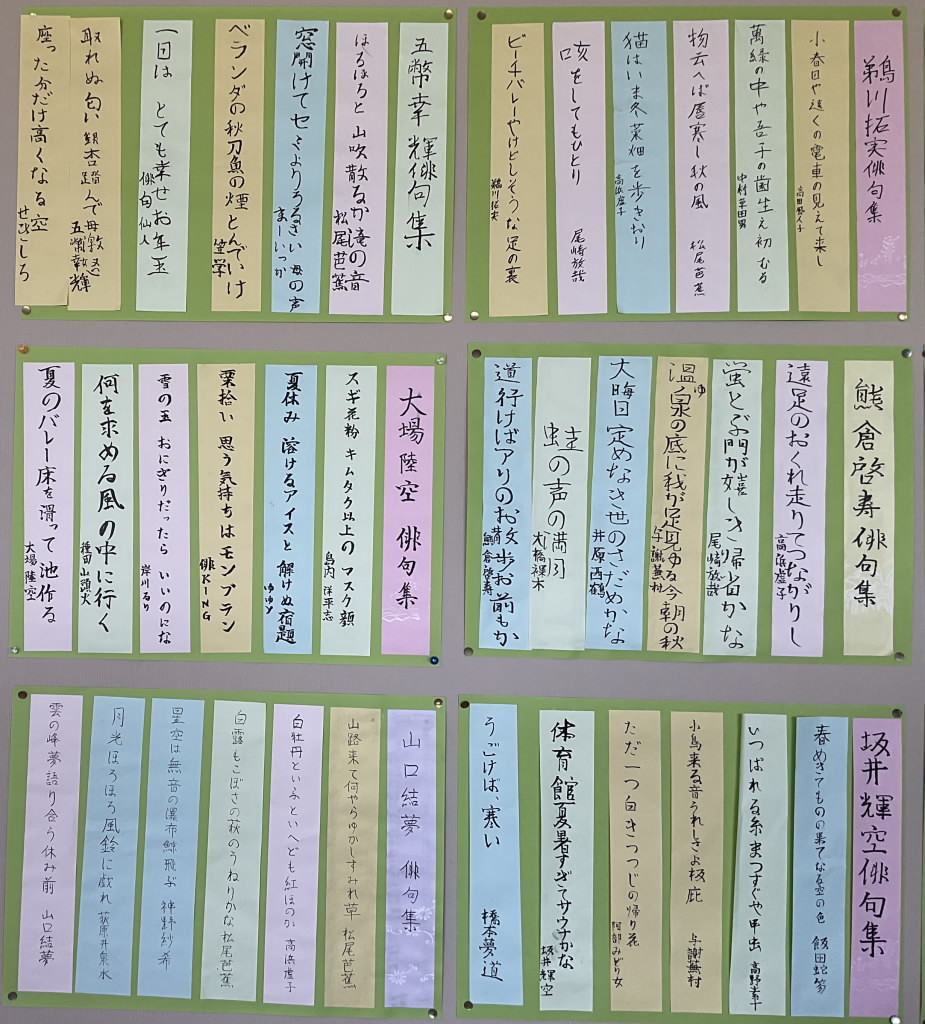 鵜川拓実俳句集
小春日や遠くの電車の見えて来し 高田風人子
萬緑の中や吾子の歯生え初むる 中村草田男
物云へば唇寒し秋の風 松尾芭蕉
猫はいま冬菜畑を歩きおり 高浜虚子
咳をしてもひとり 尾崎放哉
ビーチバレーやけどしそうな足の裏 鵜川拓実
五幣幸輝俳句集
ほろほろと 山吹散るか滝の音 松尾芭蕉
窓開けてセミよりうるさい母の声 まーいっか
ベランダの秋刀魚の煙とんでいけ
一日は とても幸せお年玉 俳句仙人
取れぬ匂い 銀杏踏んで母 五幣幸輝
座った分だけ高くなる空
熊倉啓寿俳句集
遠足のおくれ走りてつながりし 高浜虚子
蛍とぶ門が嬉しき帰省かな 尾崎放哉
温泉の底に我が足見ゆる今朝の秋 与謝蕪村
ゆ
大晦日定めなき世のさだめかな 井原西鶴
蛙の声の満月 大橋裸木
道行けばアリのお散歩お前もか 熊倉啓寿
大場陸空 俳句集
スギ花粉 キムタク以上のマスク顔
夏休み 溶けるアイスと解けぬ宿題 ゆゆゆ
栗拾い 思う気持ちはモンブラン 俳KING
雪の玉 おにぎりだったら いいのにな 岸川るり
何を求める風の中に行く 種田山頭火
夏のバレー床を滑って池作る 大場陸空
坂井輝空俳句集
春めきてものの果てなる空の色 飯田蛇笏
ひつぱれる糸まつすぐや甲虫 高野素十
小鳥来る音うれしさよ板庇 与謝蕪村
ただ一つ白きつつじの帰り花 阿部みどり女
体育館夏暑すぎてサウナかな 坂井輝空
うごけば、寒い 橋本夢道
山口結夢 俳句集
山路来て何やらゆかしすみれ草 松尾芭蕉
白牡丹といふといへども紅ほのか 高浜虚子
白露もこぼさの萩のうねりかな 松尾芭蕉
星空は無音の瀑布鯨飛ぶ 神野紗希
月光ほろほろ風鈴に戯れ 荻原井泉水
雲の峰夢語り合う休み前 山口結夢